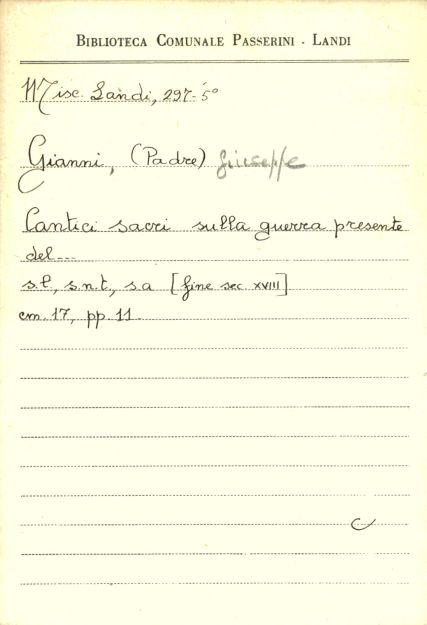 BIBLIOTECA COMUNALE PASSERINI - LANDI
Misc. Landi, 297-5°
Gianni, (Padre) Giuseppe
Cantici sacri sulla guerra presente
del...
s.l, s.n.t, s.a [fine sec. XVIII]
cm. 17, pp. 11.
C